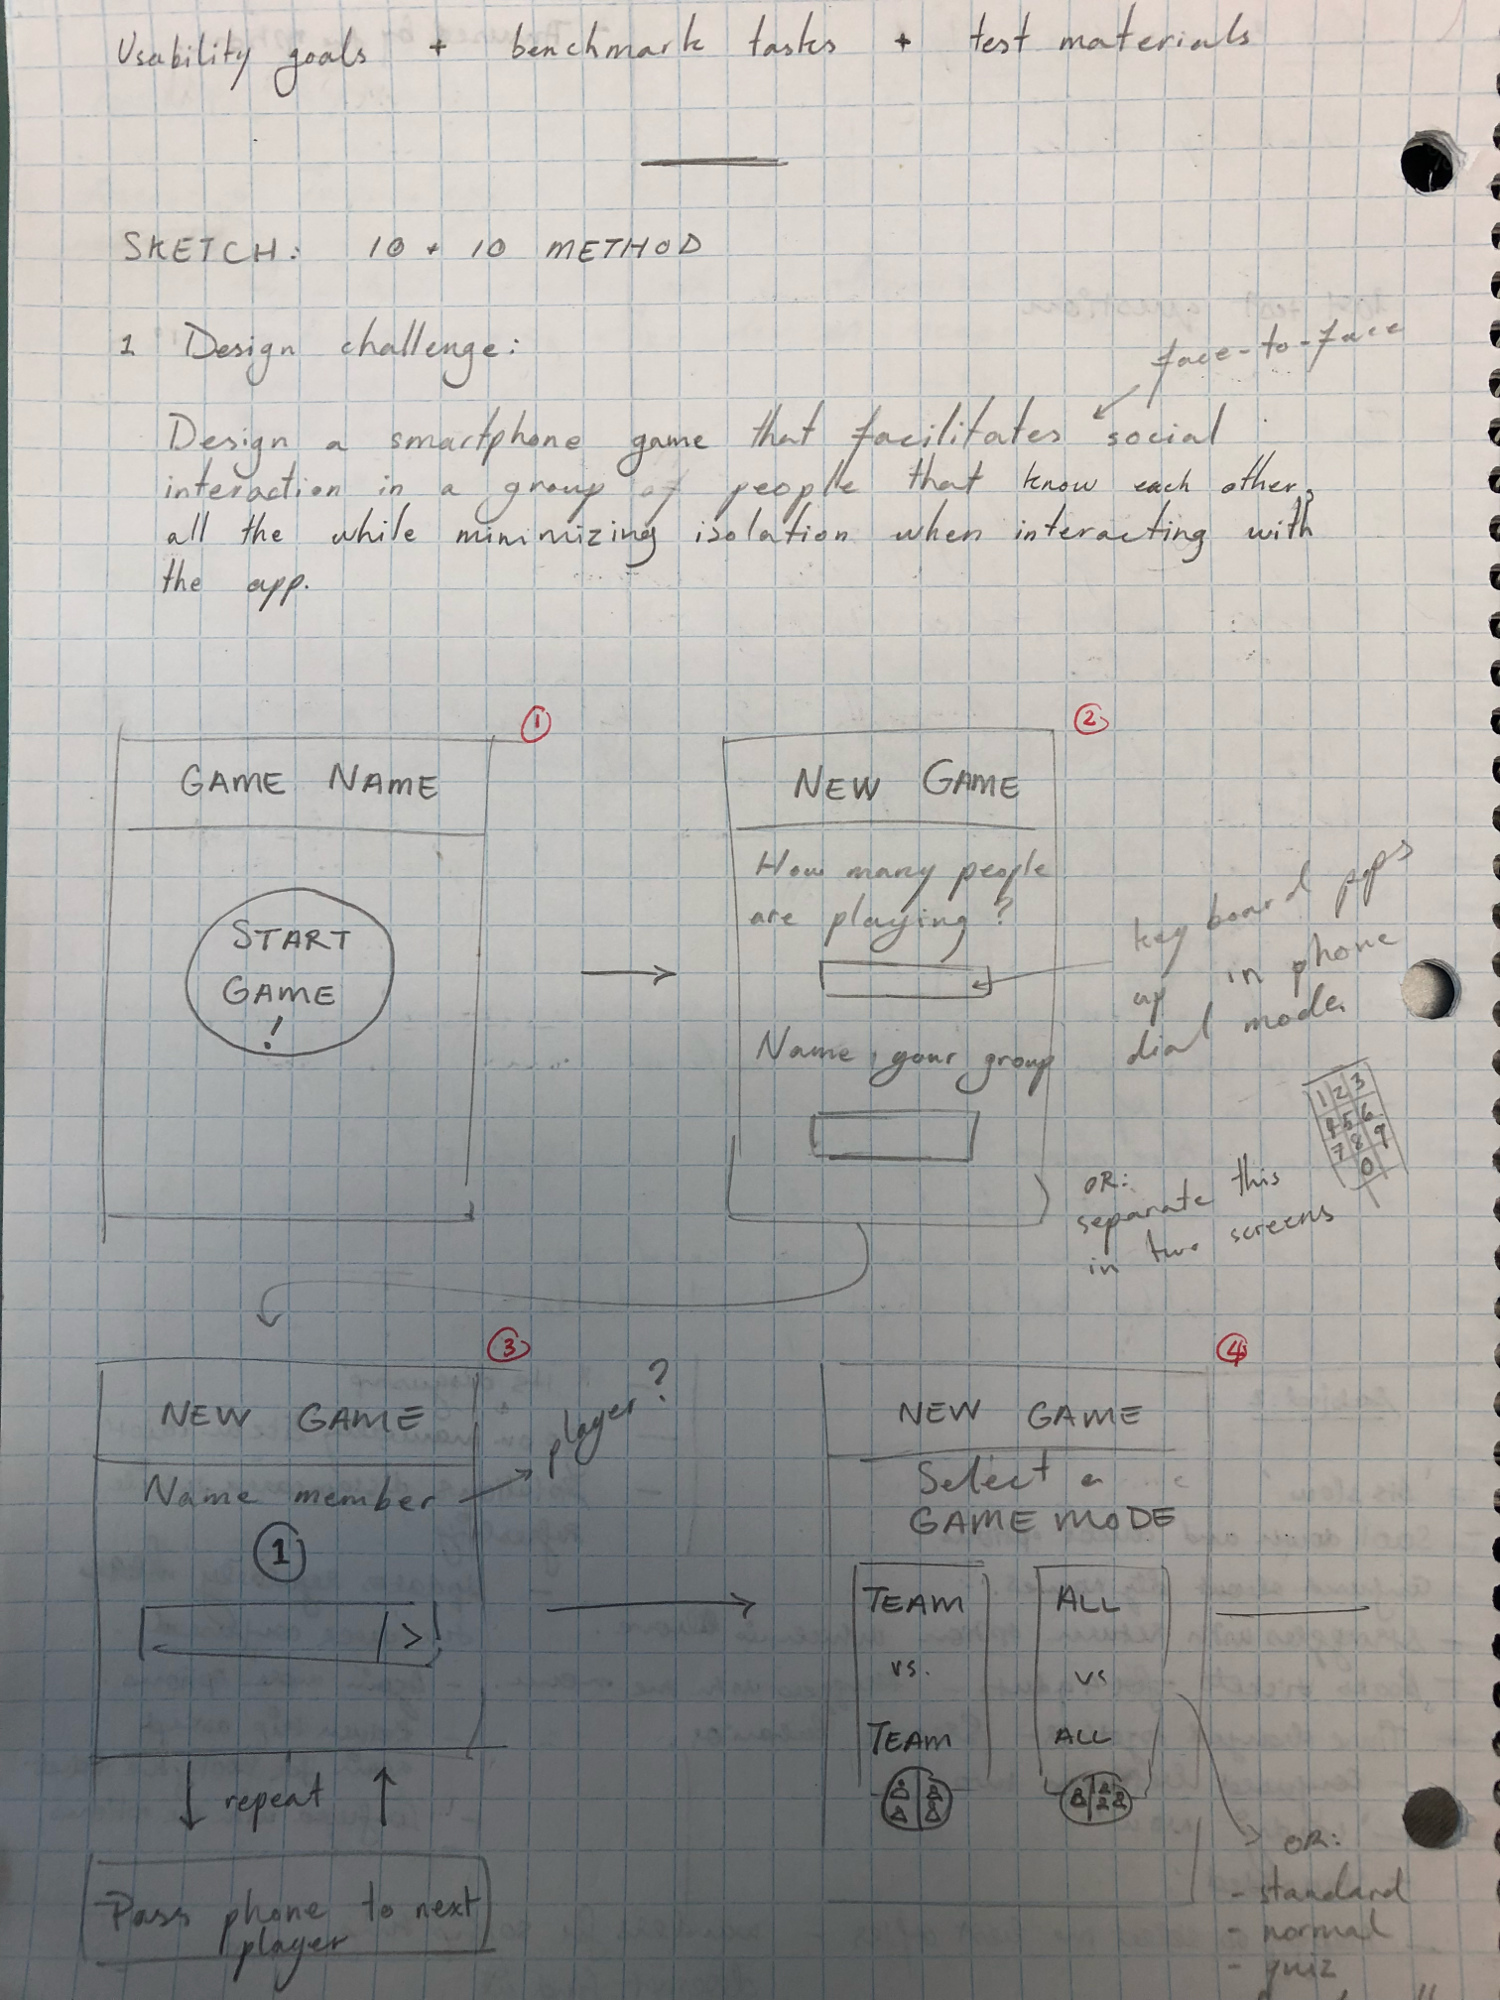 Usability goals + benchmark tasks + test materials
SKETCH: 10 + 10 METHOD
1 Design challenge:
face-to-face
Design a smartphone game that facilitates social
interaction in a group of people that know each other,
all the while minimizing isolation when interacting with
the app.
1
GAME NAME
START
GAME
!
2
NEW GAME
How many people
are playing?
Name your group
key board pops
up in phone
dial mode
1 2 3
4 5 6
7 8 9
0
OR:
separate this
in two screens
3
NEW GAME
Name member
player?
1
>
repeat
Pass phone to next
player
4
NEW GAME
Select a
GAME MODE
TEAM
vs.
TEAM
ALL
vs
ALL
OR:
- standard
- normal
- quiz